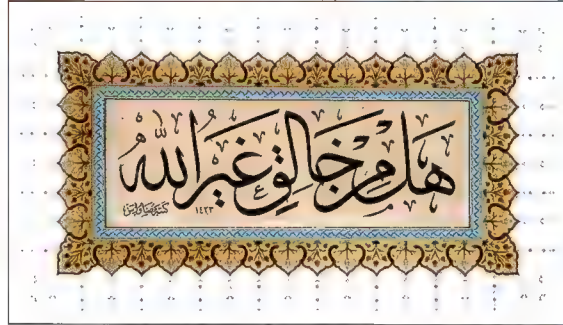 هَلْ مِنْ خَالِقٍ غَيْرُ اللَّهِ
١٤٢٣